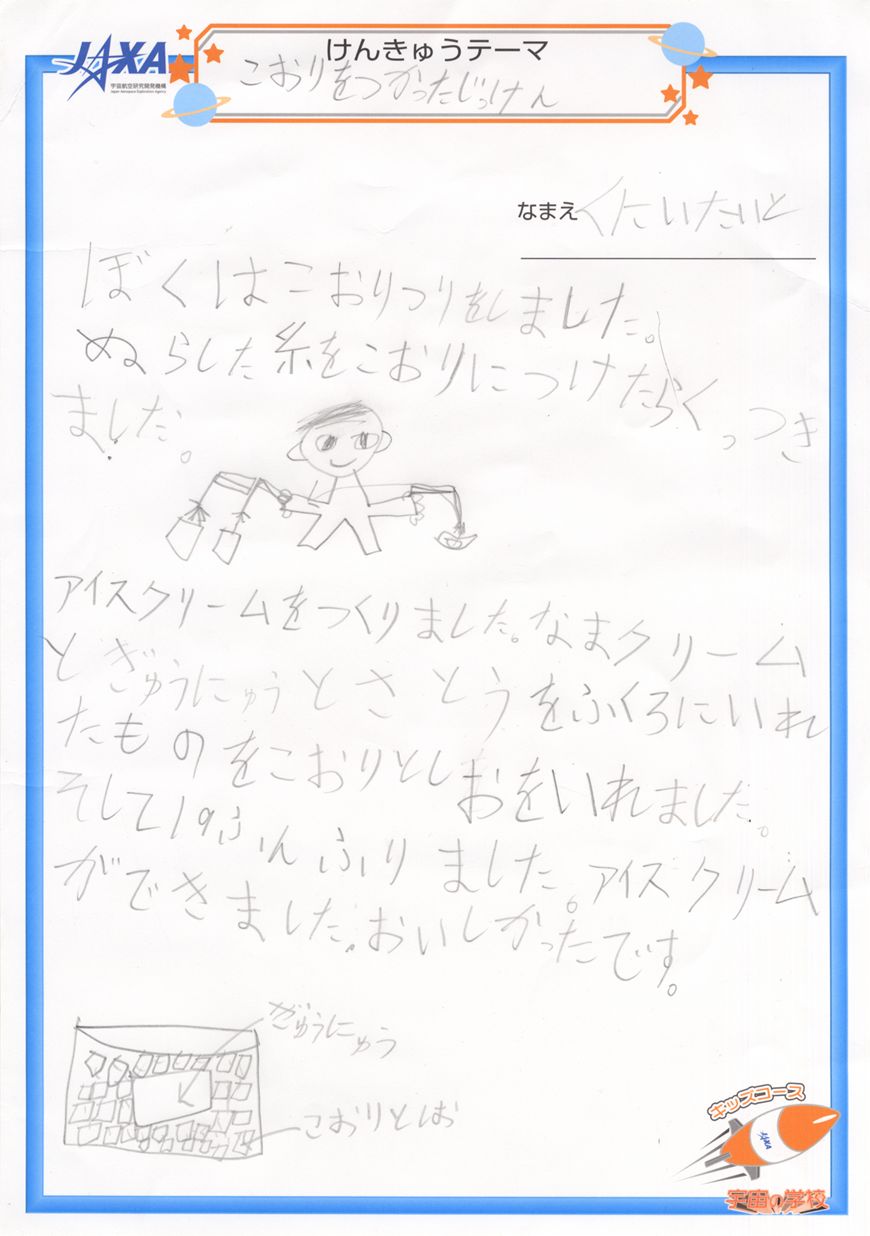 JAXA
宇宙航空研究開発機構
Japan Aerospace Exploration Agency
けんきゅうテーマ
こおりをつかったじっけん
なまえ くにいたいと
ぼくはこおりつりをしました。
ぬらした糸をこおりにつけたらくっつき
ました。
アイスクリームをつくりました。なまクリーム
とぎゅうにゅうとさとうをふくろにいれ
たものをこおりとしおをいれました。
そして19ふんふりました。アイスクリーム
ができました。おいしかったです。
ぎゅうにゅう
こおりとしお
キッズコース
JAXA
宇宙の学校